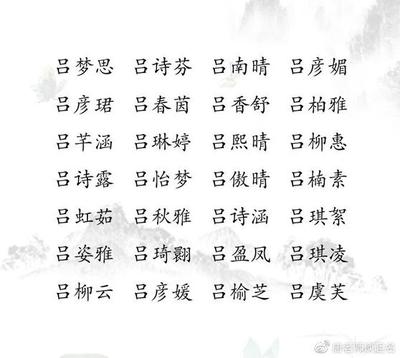 吕梦思 吕诗芬 吕南晴 吕彦媚
吕彦珺 吕春茵 吕香舒 吕柏雅
吕芊涵 吕琳婷 吕熙晴 吕柳惠
吕诗露 吕怡梦 吕傲晴 吕楠素
吕虹茹 吕秋雅 吕诗涵 吕琪絮
吕姿雅 吕琦翾 吕盈凤 吕琪凌
吕柳云 吕彦媛 吕榆芝 吕虞芙